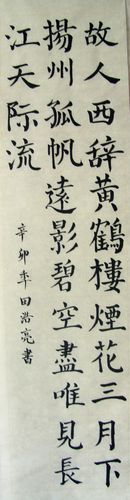 故人西辞黃鶴樓煙花三月下
揚州孤帆遠影碧空盡唯見長
江天际流
辛卯年田浩亮書